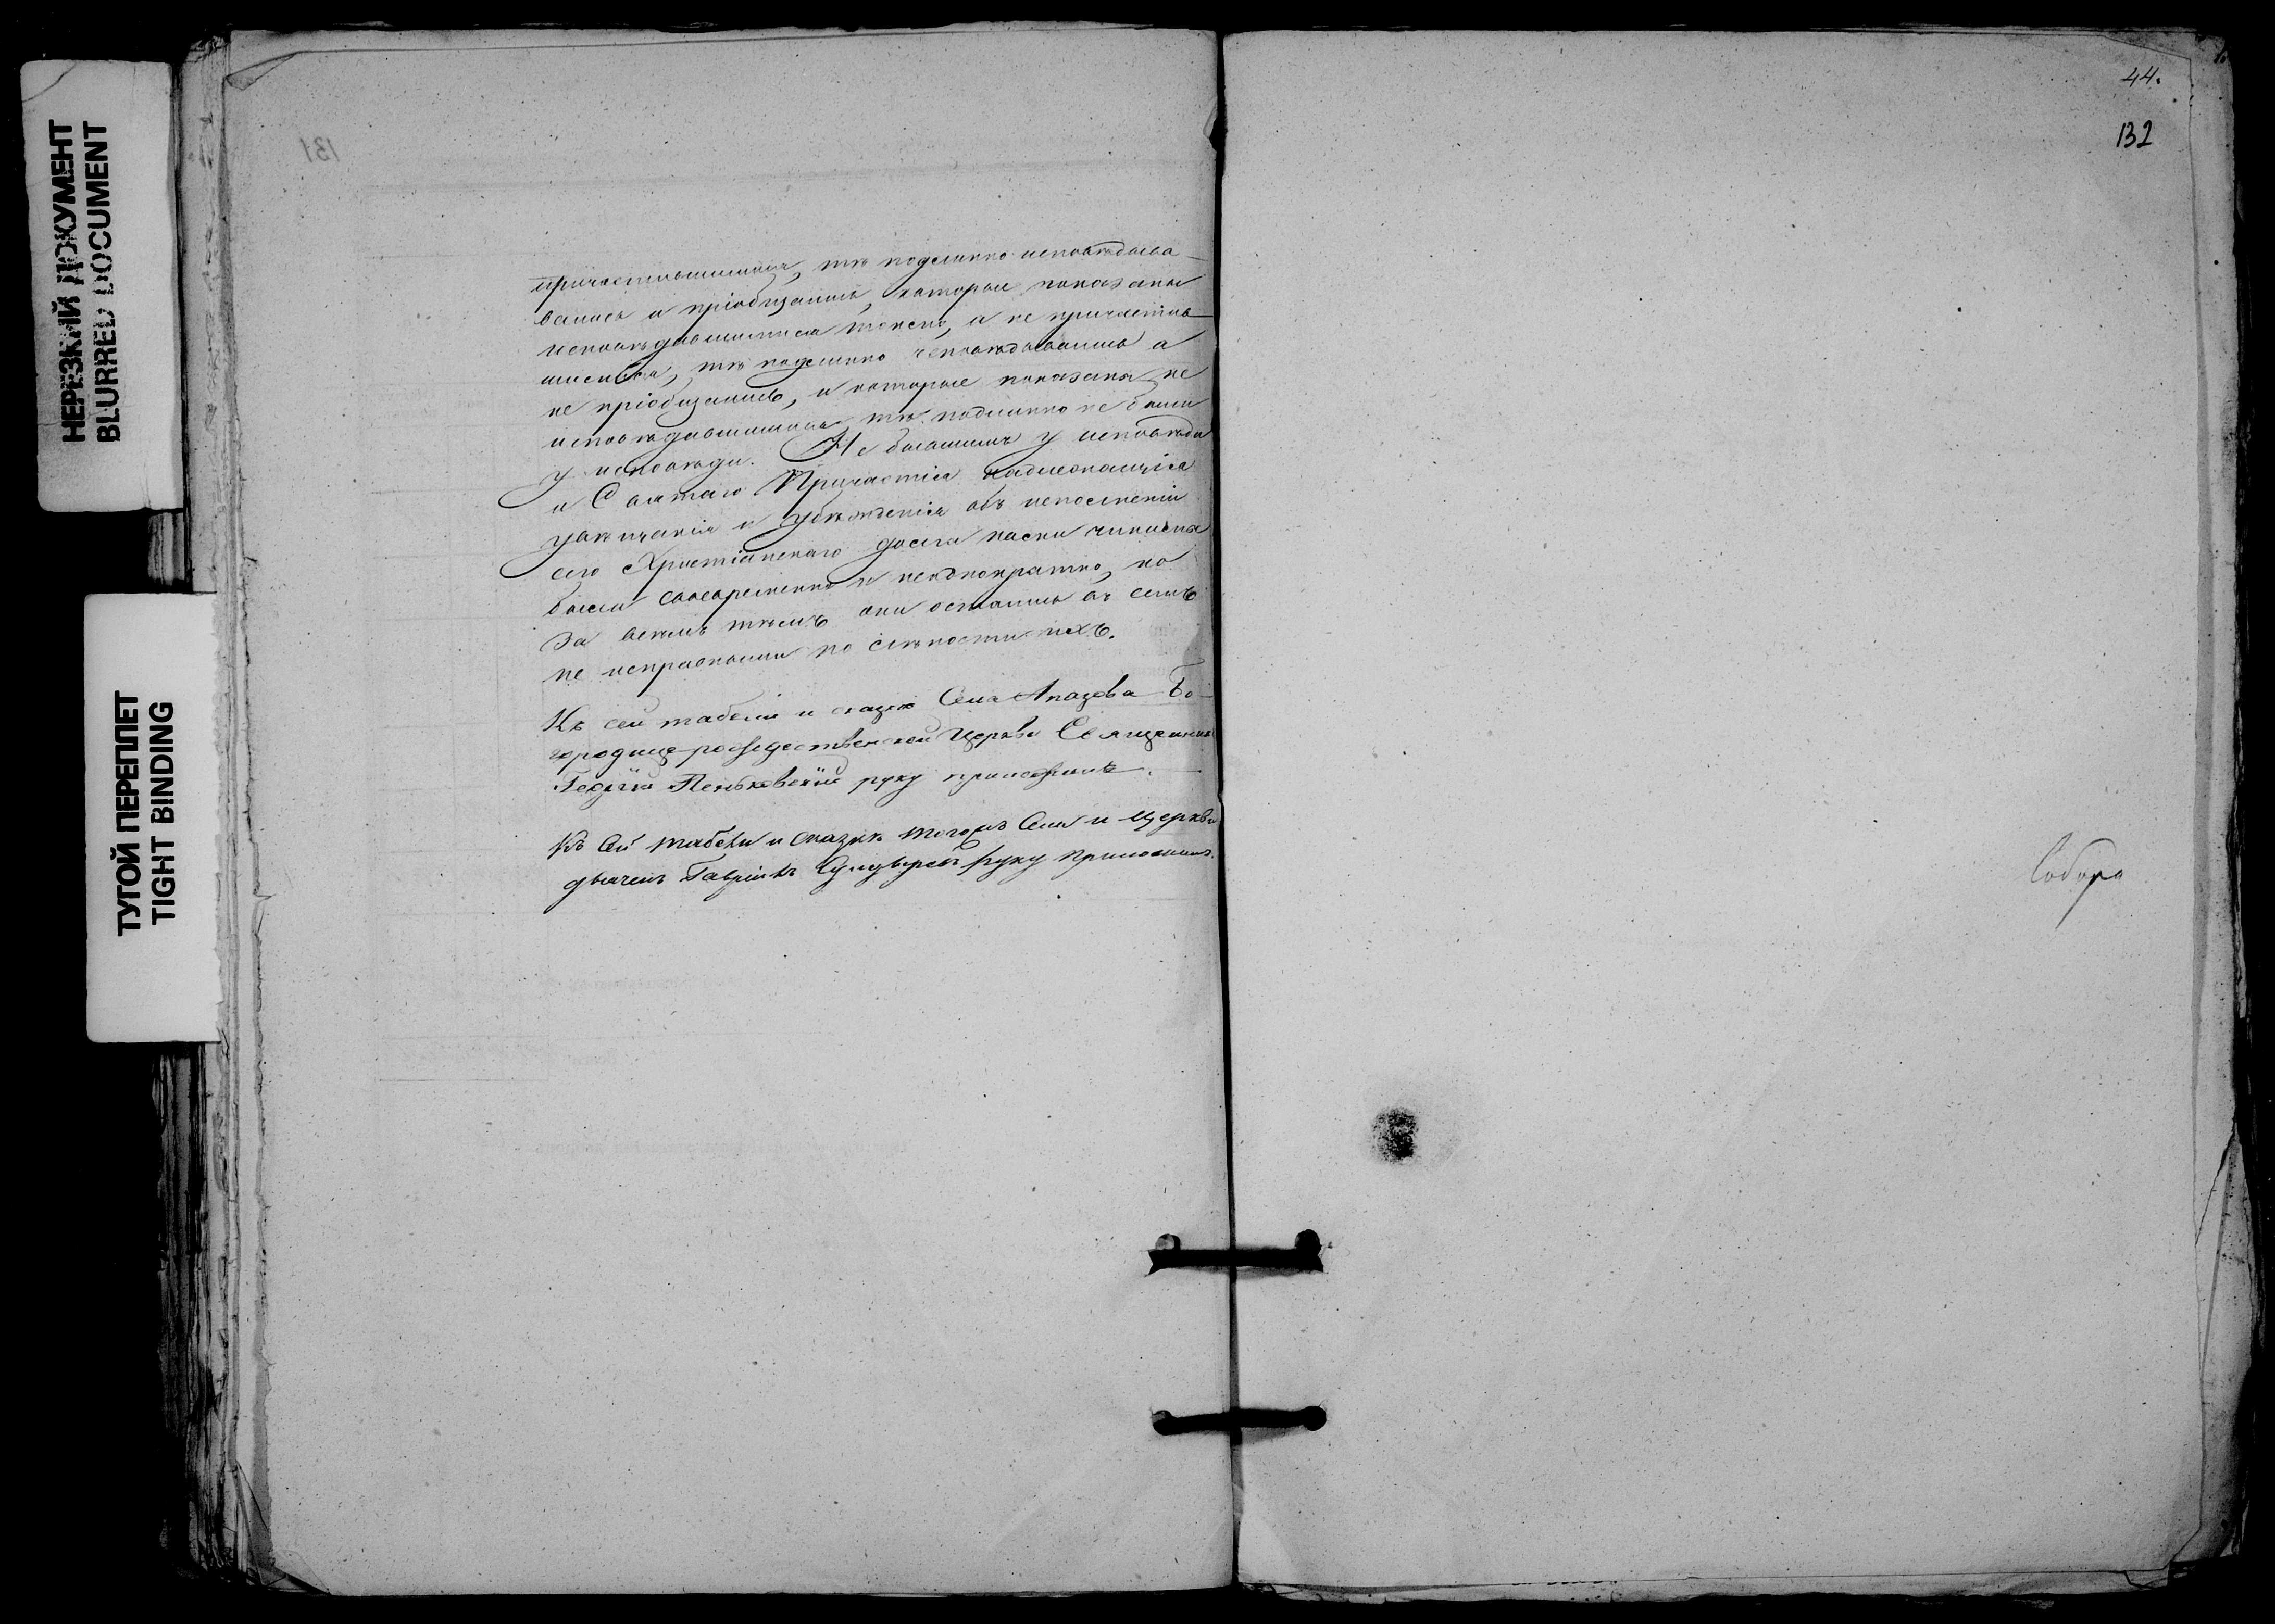 НЕРЕЗКИЙ ДОКУМЕНТ
BLURRED DOCUMENT
ТУГОЙ ПЕРЕПЛЕТ
TIGHT BINDING
131
причастившимися, тѣ подлинно исповѣдыва-
вались и пріобщались, которые показаны
исповѣдавшимися токмо, а не причастив-
шимися, тѣ подлинно исповѣдывались а
не пріобщались, и которые показаны не
исповѣдавшимися тѣ подлинно не были
у исповѣди. Не бывшимъ у исповѣди
и Святаго Причастія надлежащія
увѣщанія и убѣжденія объ исполненіи
сего Христіанскаго долга нами чинимы
были своевременно и неоднократно, но
за всѣмъ тѣмъ они остались въ семъ
не исправными по слѣпости ихъ.
Къ сей табели и сказкѣ Села Апазова Бо-
городице-рождественской Церкви Священникъ
Георгій Пеньковскій руку приложилъ.
Къ сей табели и сказкѣ тогожъ Села и Церкви
дьячекъ Гавріилъ руку приложилъ.
44.
132
Собора